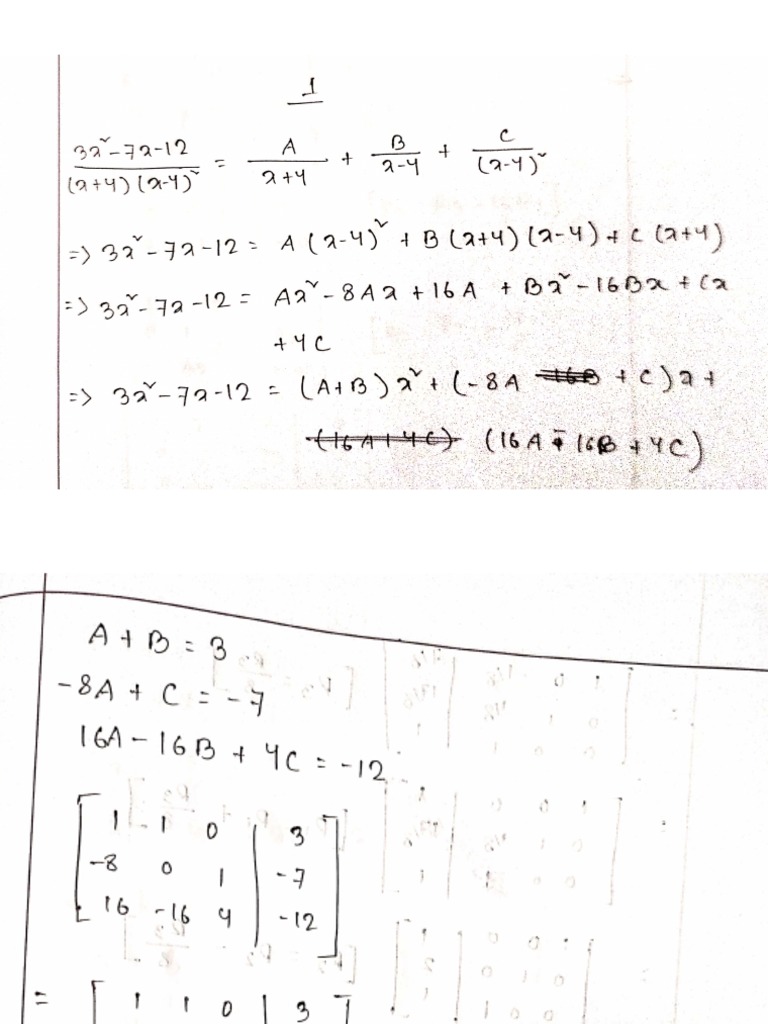 1
3x²-7x-12 / (x+4)(x-4)² = A / x+4 + B / x-4 + C / (x-4)²
=> 3x²-7x-12 = A(x-4)² + B(x+4)(x-4) + C(x+4)
=> 3x²-7x-12 = Ax²-8Ax+16A + Bx²-16Bx + Cx
+4C
=> 3x²-7x-12 = (A+B)x² + (-8A -16B + C)x +
(16A+4C) (16A - 16B + 4C)
A + B = 3
-8A + C = -7
16A - 16B + 4C = -12
1 1 0 | 3
-8 0 1 | -7
16 -16 4 | -12
= [ 1 1 0 | 3 ]